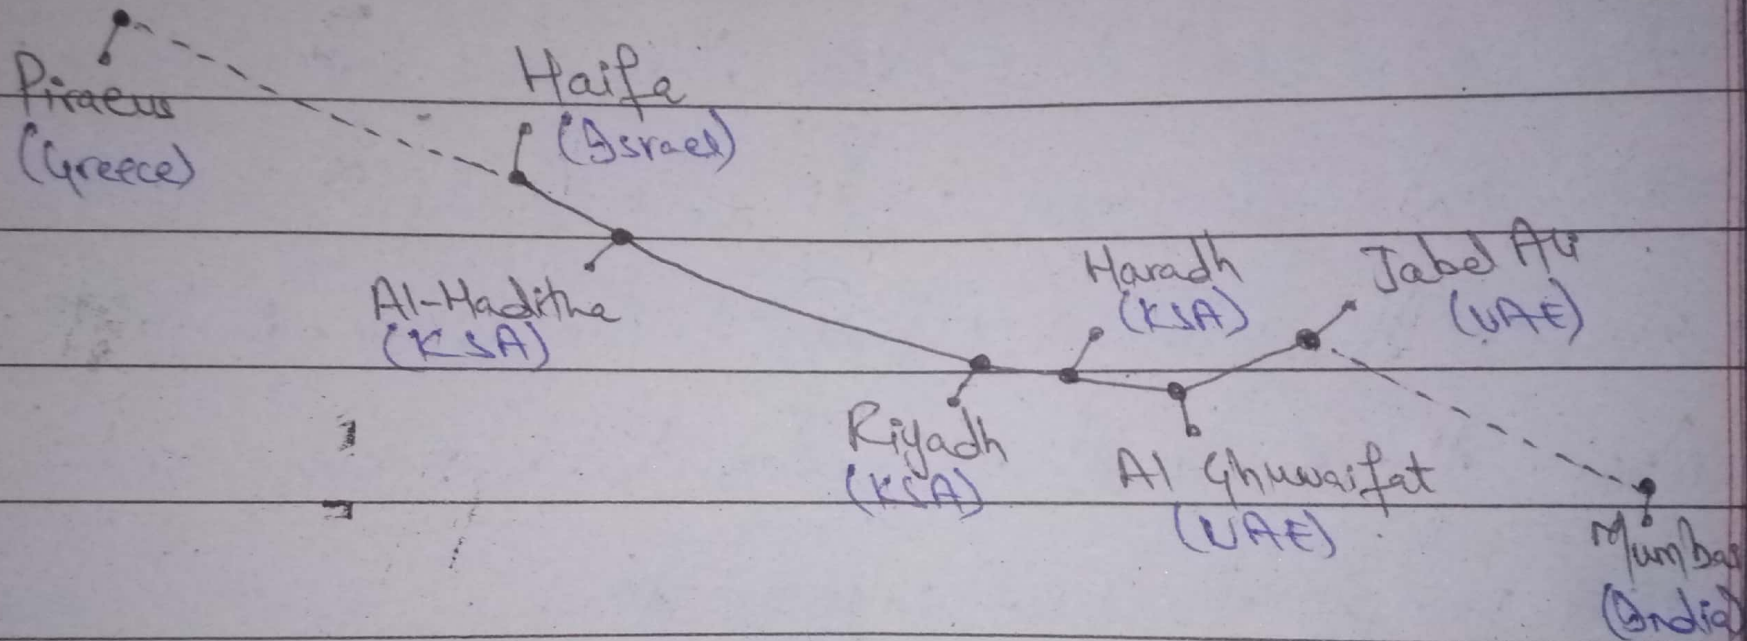 Piraeus
(Greece)
Haifa
(Israel)
Al-Haditha
(KSA)
Riyadh
(KSA)
Haradh
(KSA)
Al Ghuwaifat
(UAE)
Jabel Ali
(UAE)
Mumbai
(India)